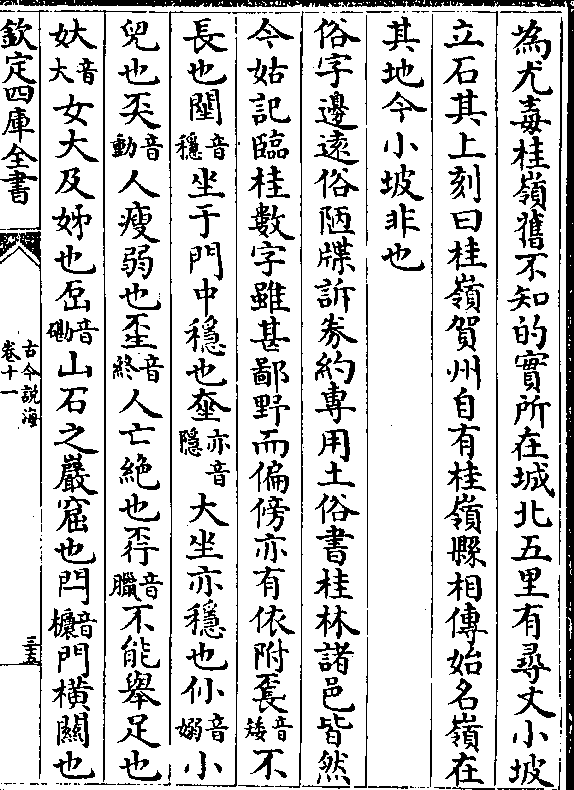 為尤毒桂嶺舊不知的實所在城北五里有尋丈小坡
立石其上刻曰桂嶺賀州自有桂嶺縣相傳始名嶺在
其地今小坡非也
俗字邊遠俗陋牒訴券約專用土俗書桂林諸邑皆然
今姑記臨桂數字雖甚鄙野而偏傍亦有依附𡘷音矮不
長也𨳊音穩坐于門中穩也𡘙亦音隱大坐亦穩也仦音嫋小
兒也奀音動人瘦弱也𡘍音終人亡絶也𡚇音臘不能舉足也
妖音大女大及姊也𡶒音磡山石之巖窟也閂音櫦門橫關也
欽定四庫全書
古今說海
卷十一
三五